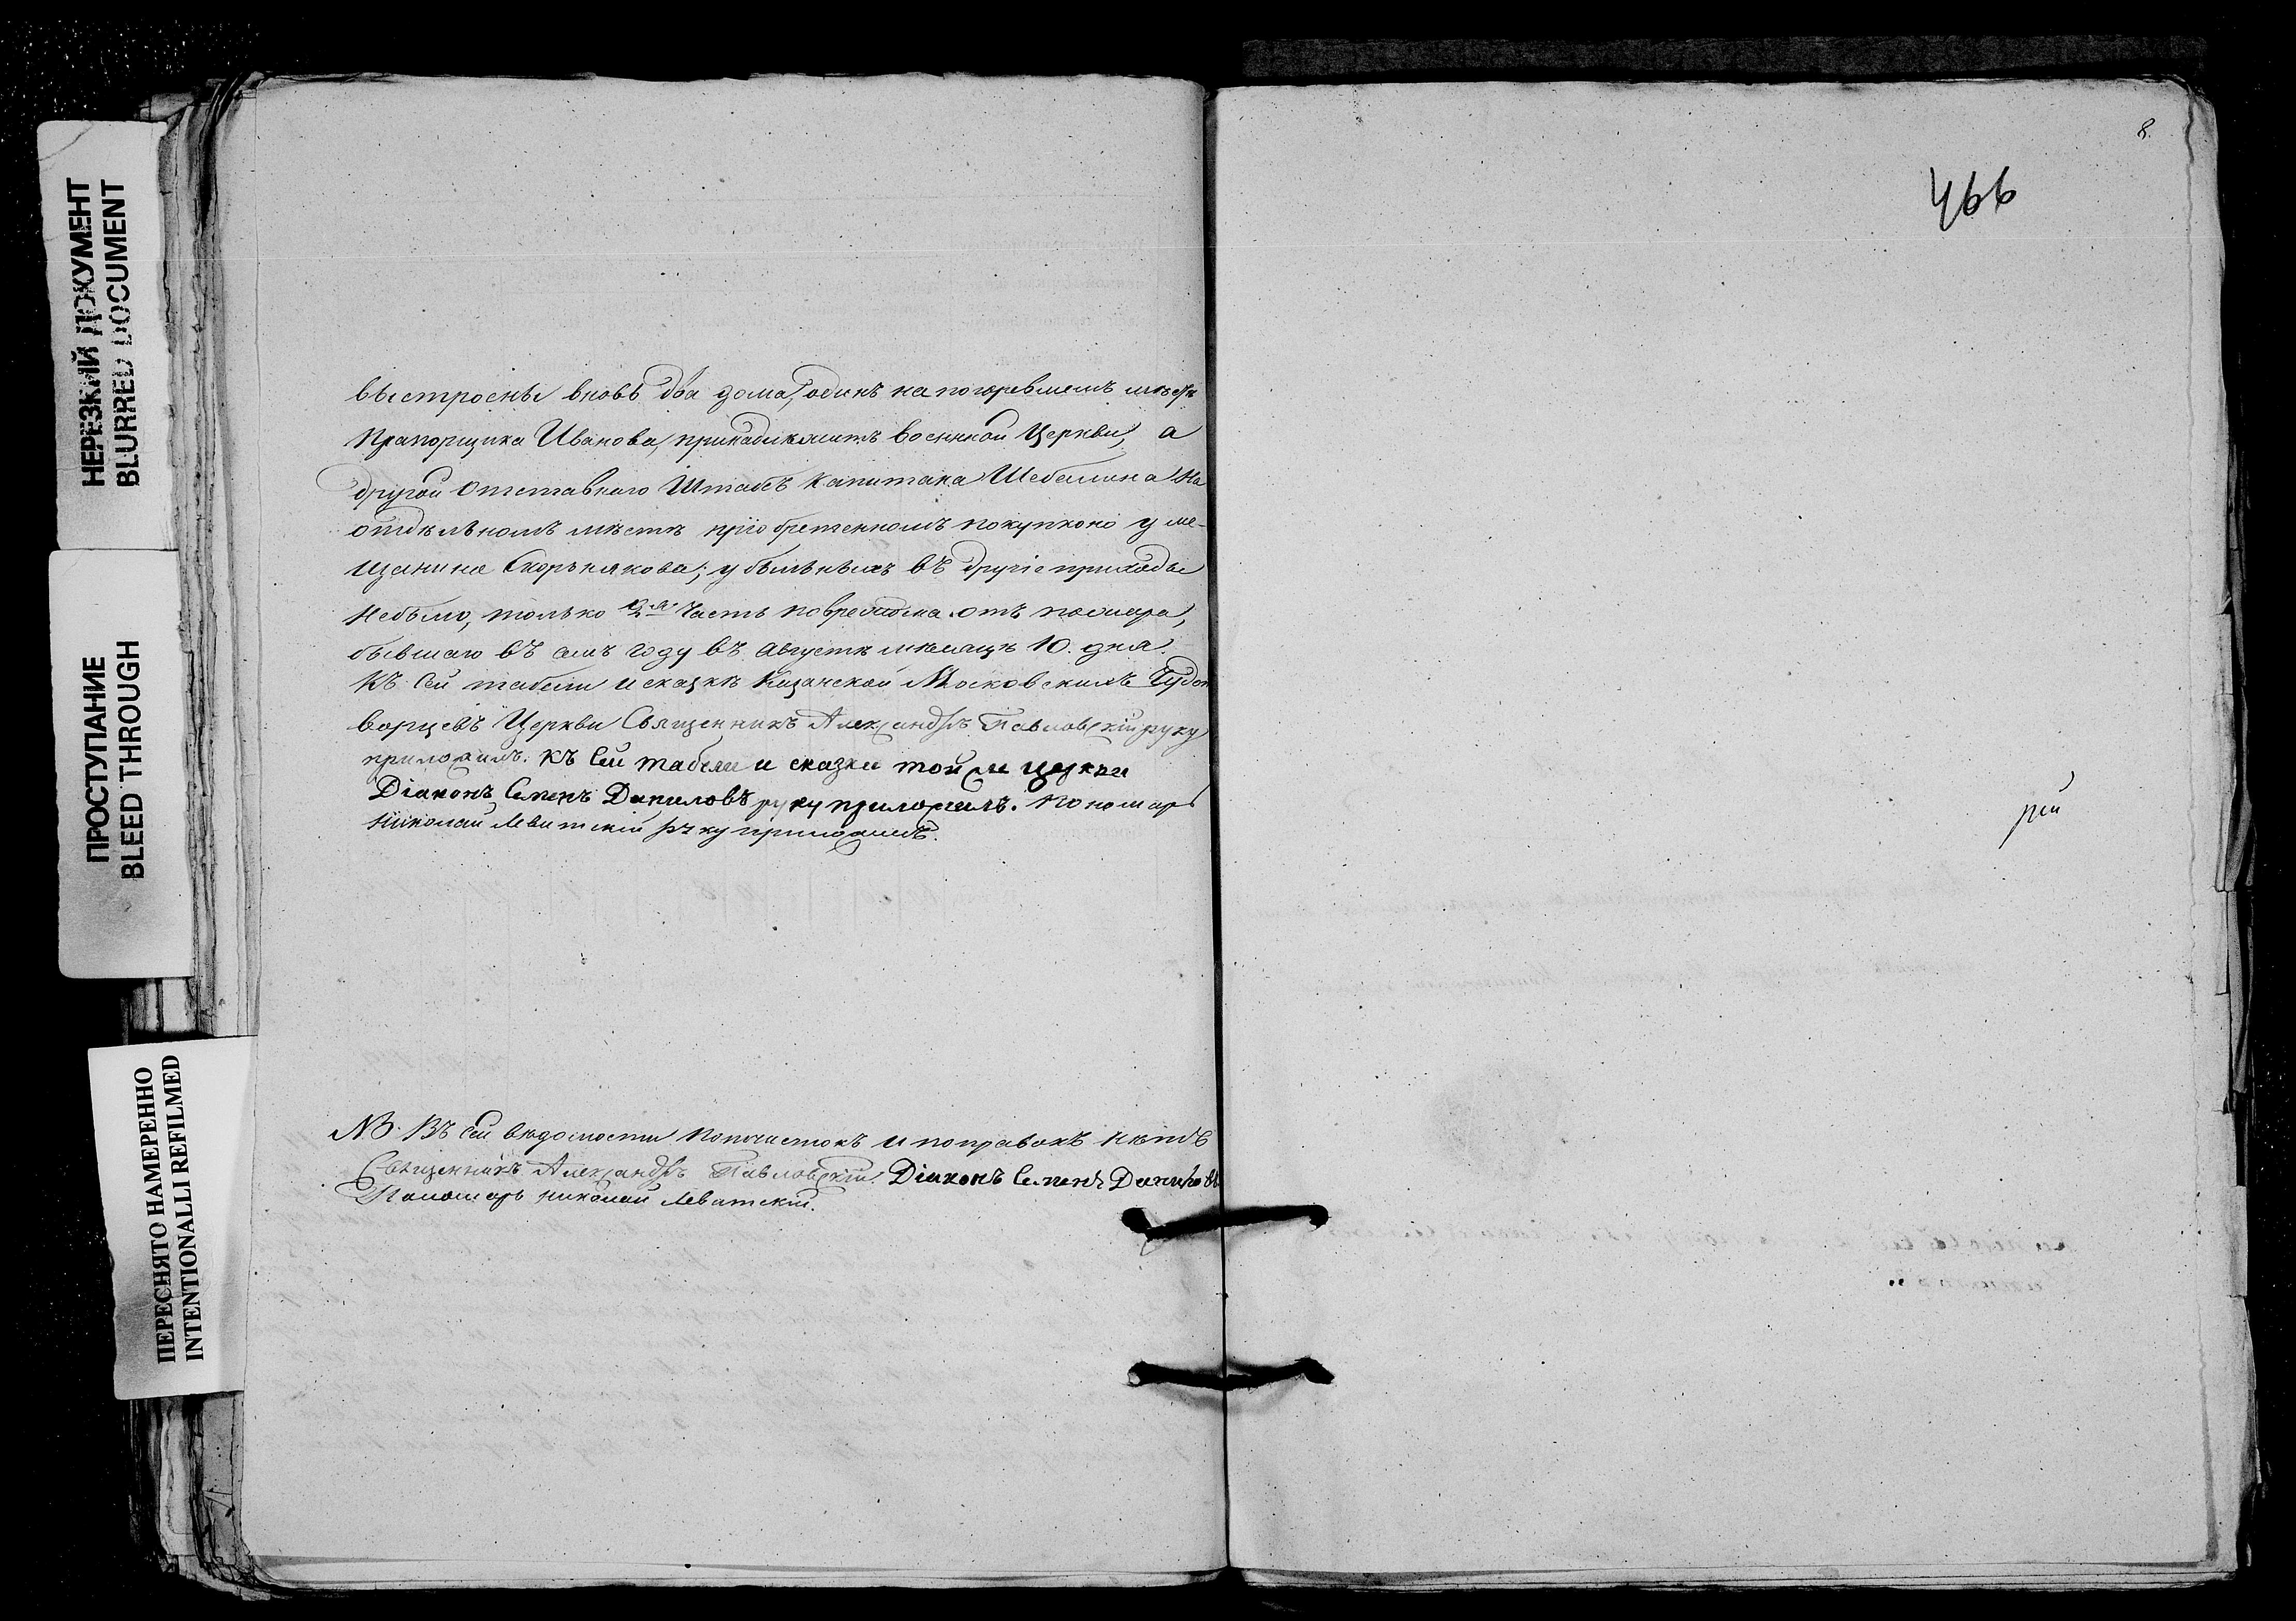 НЕРЕЗКИЙ ДОКУМЕНТ
BLURRED DOCUMENT
ПРОСТУПАНИЕ
BLEED THROUGH
ПЕРЕСНЯТО НАМЕРЕННО
INTENTIONALLI REFILMED
выстроены вновь два дома, одинъ на погоревшемъ мѣстѣ
Прапорщика Иванова, принадлежитъ военной Церкви, а
другой Отставнаго Штабсъ Капитана Шебашина на
отдѣльномъ мѣстѣ пріобретенномъ покупкою у ме-
щанина Скорнякова; убылыхъ въ другіе приходы
небыло, только часть повреждена отъ пожара,
бывшаго въ семъ году въ Августѣ мѣсяцѣ 10. дня.
Къ сей табели и сказкѣ Казанской Московскихъ Чудот
ворцевъ Церкви Священникъ Александръ Павловскій руку
приложилъ. Къ сей табели и сказки той же церкви
Діаконъ Семенъ Даниловъ руку приложилъ. Пономарь
Николай Левитскій руку приложилъ.
NB. Въ сей вѣдомости почистокъ и поправокъ нѣтъ
Священникъ Александръ Павловскій Діаконъ Семенъ Даниловъ
Пономарь Николай Левитскій.
8.
466
рій